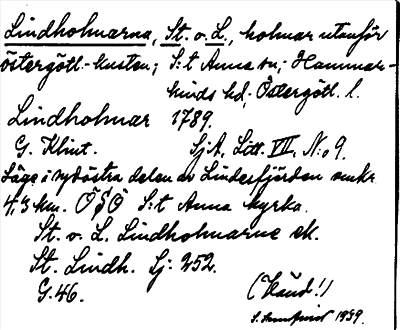 Lindholmarna, St. o. L., holmar utanför
östergötl.-kusten; S:t Anna sn; Hammar-
kinds hd; Östergötl. l.
Lindholmar 1789.
G. Klint. SjA, Litt. VII, N:o 9.
Läge: i sydöstra delen av Lindersfjärden omkr.
4,3 km. ÖSÖ S:t Anna kyrka.
St. o. L. Lindholmarne ek.
St. Lindh. Sj: 252.
G. 46. (Känd!)
1939.